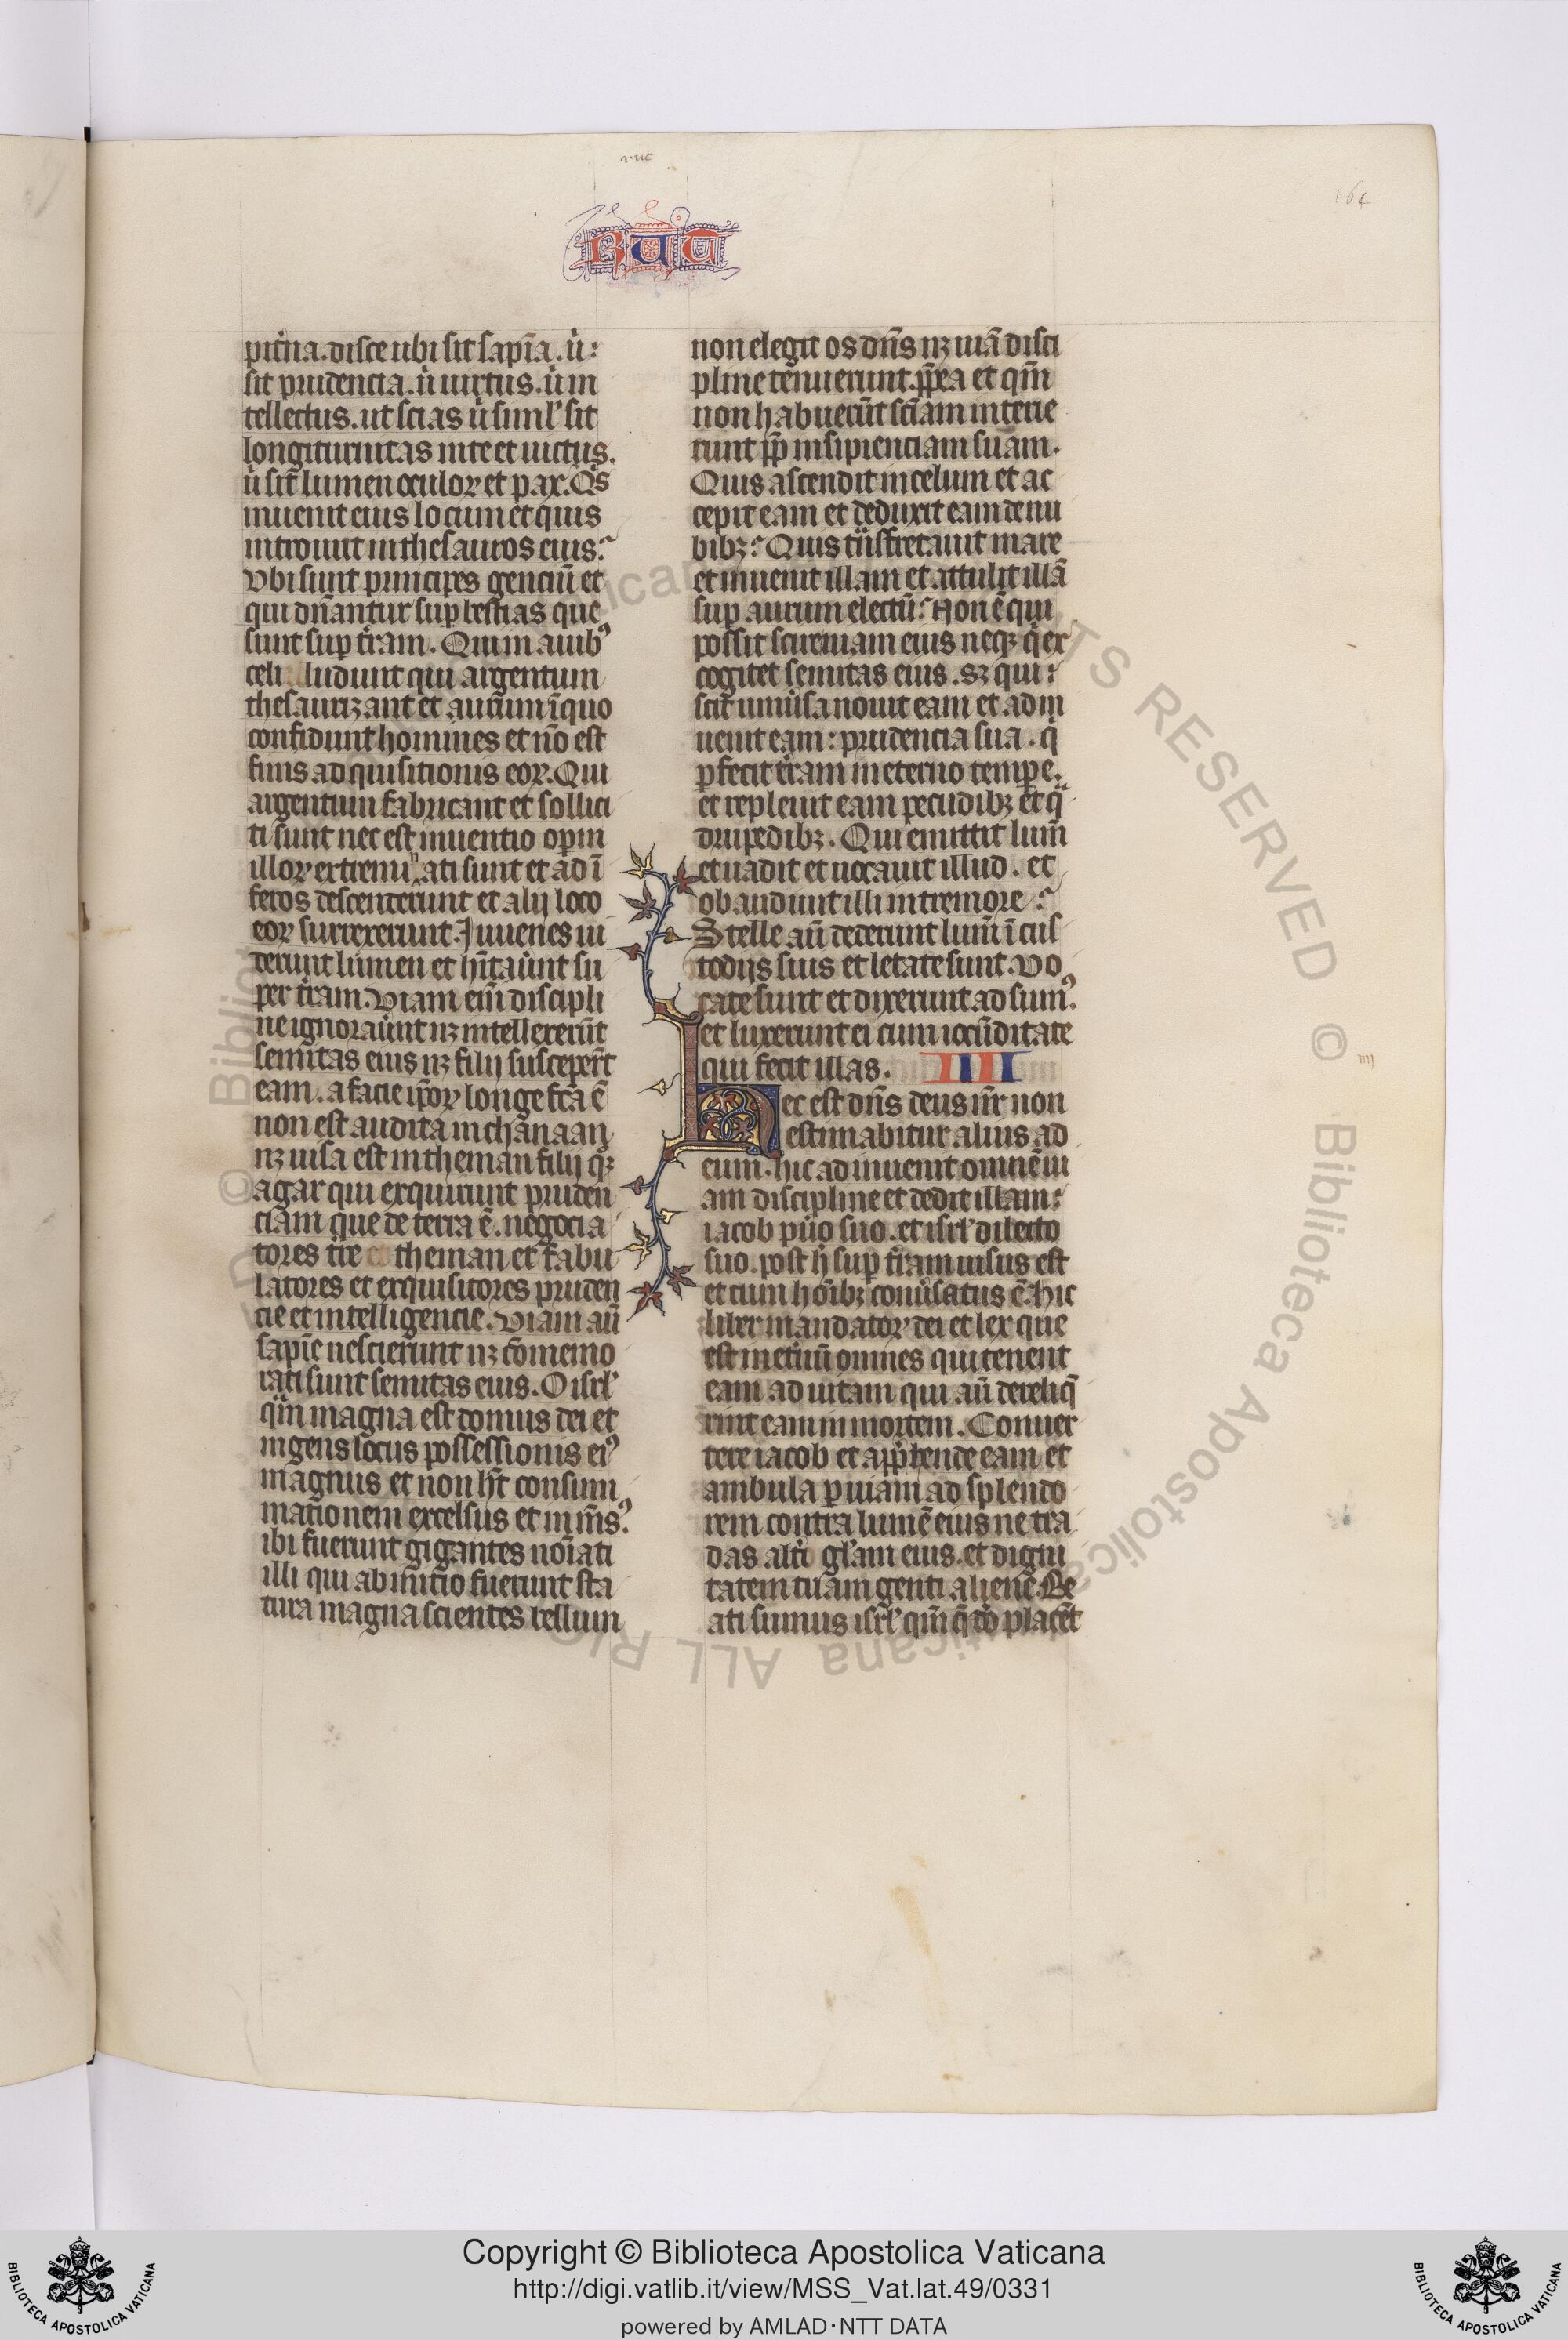 RUT
pit̾na. disce ubi sit sapiͣa. u̾:
sit prudencia. u̾ uirtus. u̾ in
tellectus. ut scias u̾ simlʼ sit
longiturnitas uite et uictus.
u̾ sit̾ lumen oculoꝝ et pax. Qͥs
inuenit eius locum et quis
introiuit in thesauros eius:
Vbi sunt principes genciū et
qui dn̄antur suꝑ bestias que
sunt suꝑ tr̄am. Qui in auibꝰ
celi ludunt qui argentum
thesaurizant et aurum ī quo
confidunt homines et nō est
finis adquisitionis eoꝝ. Qui
argentum fabricant et sollici
ti sunt nec est inuentio oꝑum
illoꝝ extremiⁿati sunt et ad ī
feros descenderunt et alij loco
eoꝝ surrexerunt. Iuuenes ui
derunt lumen et hīta̾unt su
per tr̄am. Viam em̄ discipli
ne ignora̾unt nꝫ intellexerūt
semitas eius nꝫ filij susceper̄t
eam. a facie ip̄oꝝ longe fc̄a ē
non est audita in chanaan
nꝫ uisa est in theman filij qꝫ
agar qui exquirunt pruden
ciam que de terra ē. negocia
tores tr̄e theman et fabu
latores et exquisitores pruden
cie et intelligencie. Viam aū
sapīe nescierunt nꝫ cōmemo
rati sunt semitas eius. O isrlʼ
qm̄ magna est domus dei et
ingens locus possessionis eiꝰ
magnus et non ht̄ consum
mationem excelsus et inmn̄sꝰ.
ibi fuerunt gigantes noīati
illi qui ab initio fuerunt sta
tura magna scientes bellum
non elegit os dn̄s nꝫ uiā disci
pline tenuerunt. ꝓp̄ea et qm̄
non habuerūt sc̄iam interie
runt ꝓp̄ insipienciam suam.
Quis ascendit in celum et ac
cepit eam et deduxit eam de nu
bibꝫ: Quis tͣnsfretauit mare
et inuenit illam et attulit illā
suꝑ aurum electū: Non ē qui
possit scire uiam eius neqꝫ qͥ ex
cogitet semitas eius. sꝫ qui:
scit uniu̾sa nouit eam et adin
uenit eam: prudencia sua. qͥ
ꝑfecit tr̄am in eterno tempore.
et repleuit eam pecudibꝫ et qͣ
drupedibꝫ. Qui emittit lum̄
et uadit et uocauit illud. et
obaudiunt illi in tremore:
Stelle aū dederunt lum̄ ī cus
todijs suis et letate sunt. Vo
cate sunt et dixerunt adsumꝰ.
et luxerunt ei cum iocūditate
qui fecit illas. IIII
Hec est dn̄s deus nr̄ non
estimabitur alius ad
eum. hic adinuenit omnē ui
am discipline et dedit illam:
iacob pu̾o suo. et isrlʼ dilecto
suo. post h̾ suꝑ tr̄am uisus est
et cum hoībꝫ conu̾satus ē. hic
liber mandatoꝝ dei et lex que
est in et̾nū omnes qui tenent
eam ad uitam qui aū dereliq̄
rint eam in mortem. Conuer
tere iacob et app̾hende eam et
ambula ꝑ uiam ad splendo
rem contra lumē eius ne tra
das alt̾i glʼam eius. et digni
tatem tuam genti aliene. Be
ati sumus isrlʼ qm̄ q̄ dō placēt
IIII
Copyright © Biblioteca Apostolica Vaticana
http://digi.vatlib.it/view/MSS_Vat.lat.49/0331
powered by AMLAD·NTT DATA
BIBLIOTECA APOSTOLICA VATICANA
BIBLIOTECA APOSTOLICA VATICANA